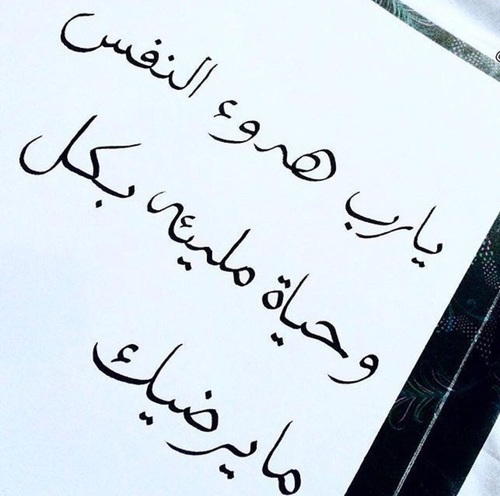 يارب هدوء النفس
وحياة مليئه بكل
مايرضيك